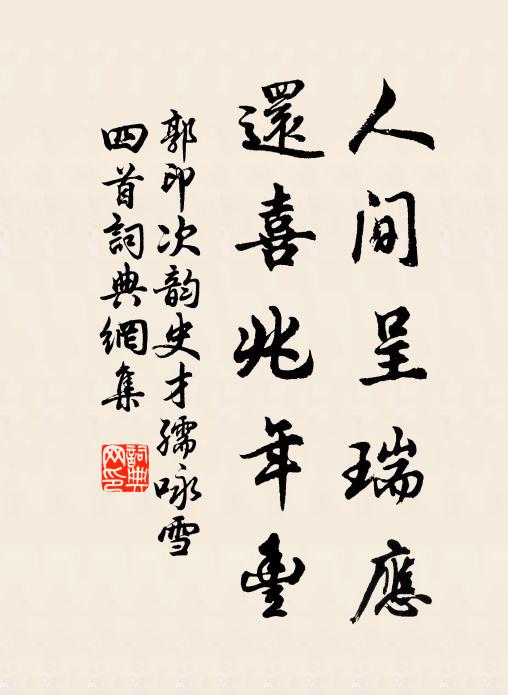 人间呈瑞應
還喜兆年豐
郭印次韵史才孺咏雪
四首詞典網集
詞典网印